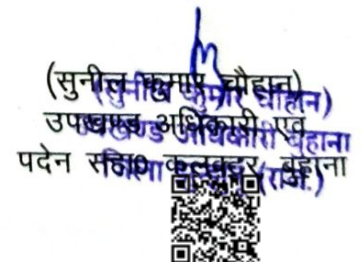 (सुनील कुमार चौहान)
उपखण्ड अधिकारी एवं
पदेन सहा० कलक्टर बुहाना
(सुनील कुमार चौहान)
उपखण्ड अधिकारी बुहाना
जिला (राज.)